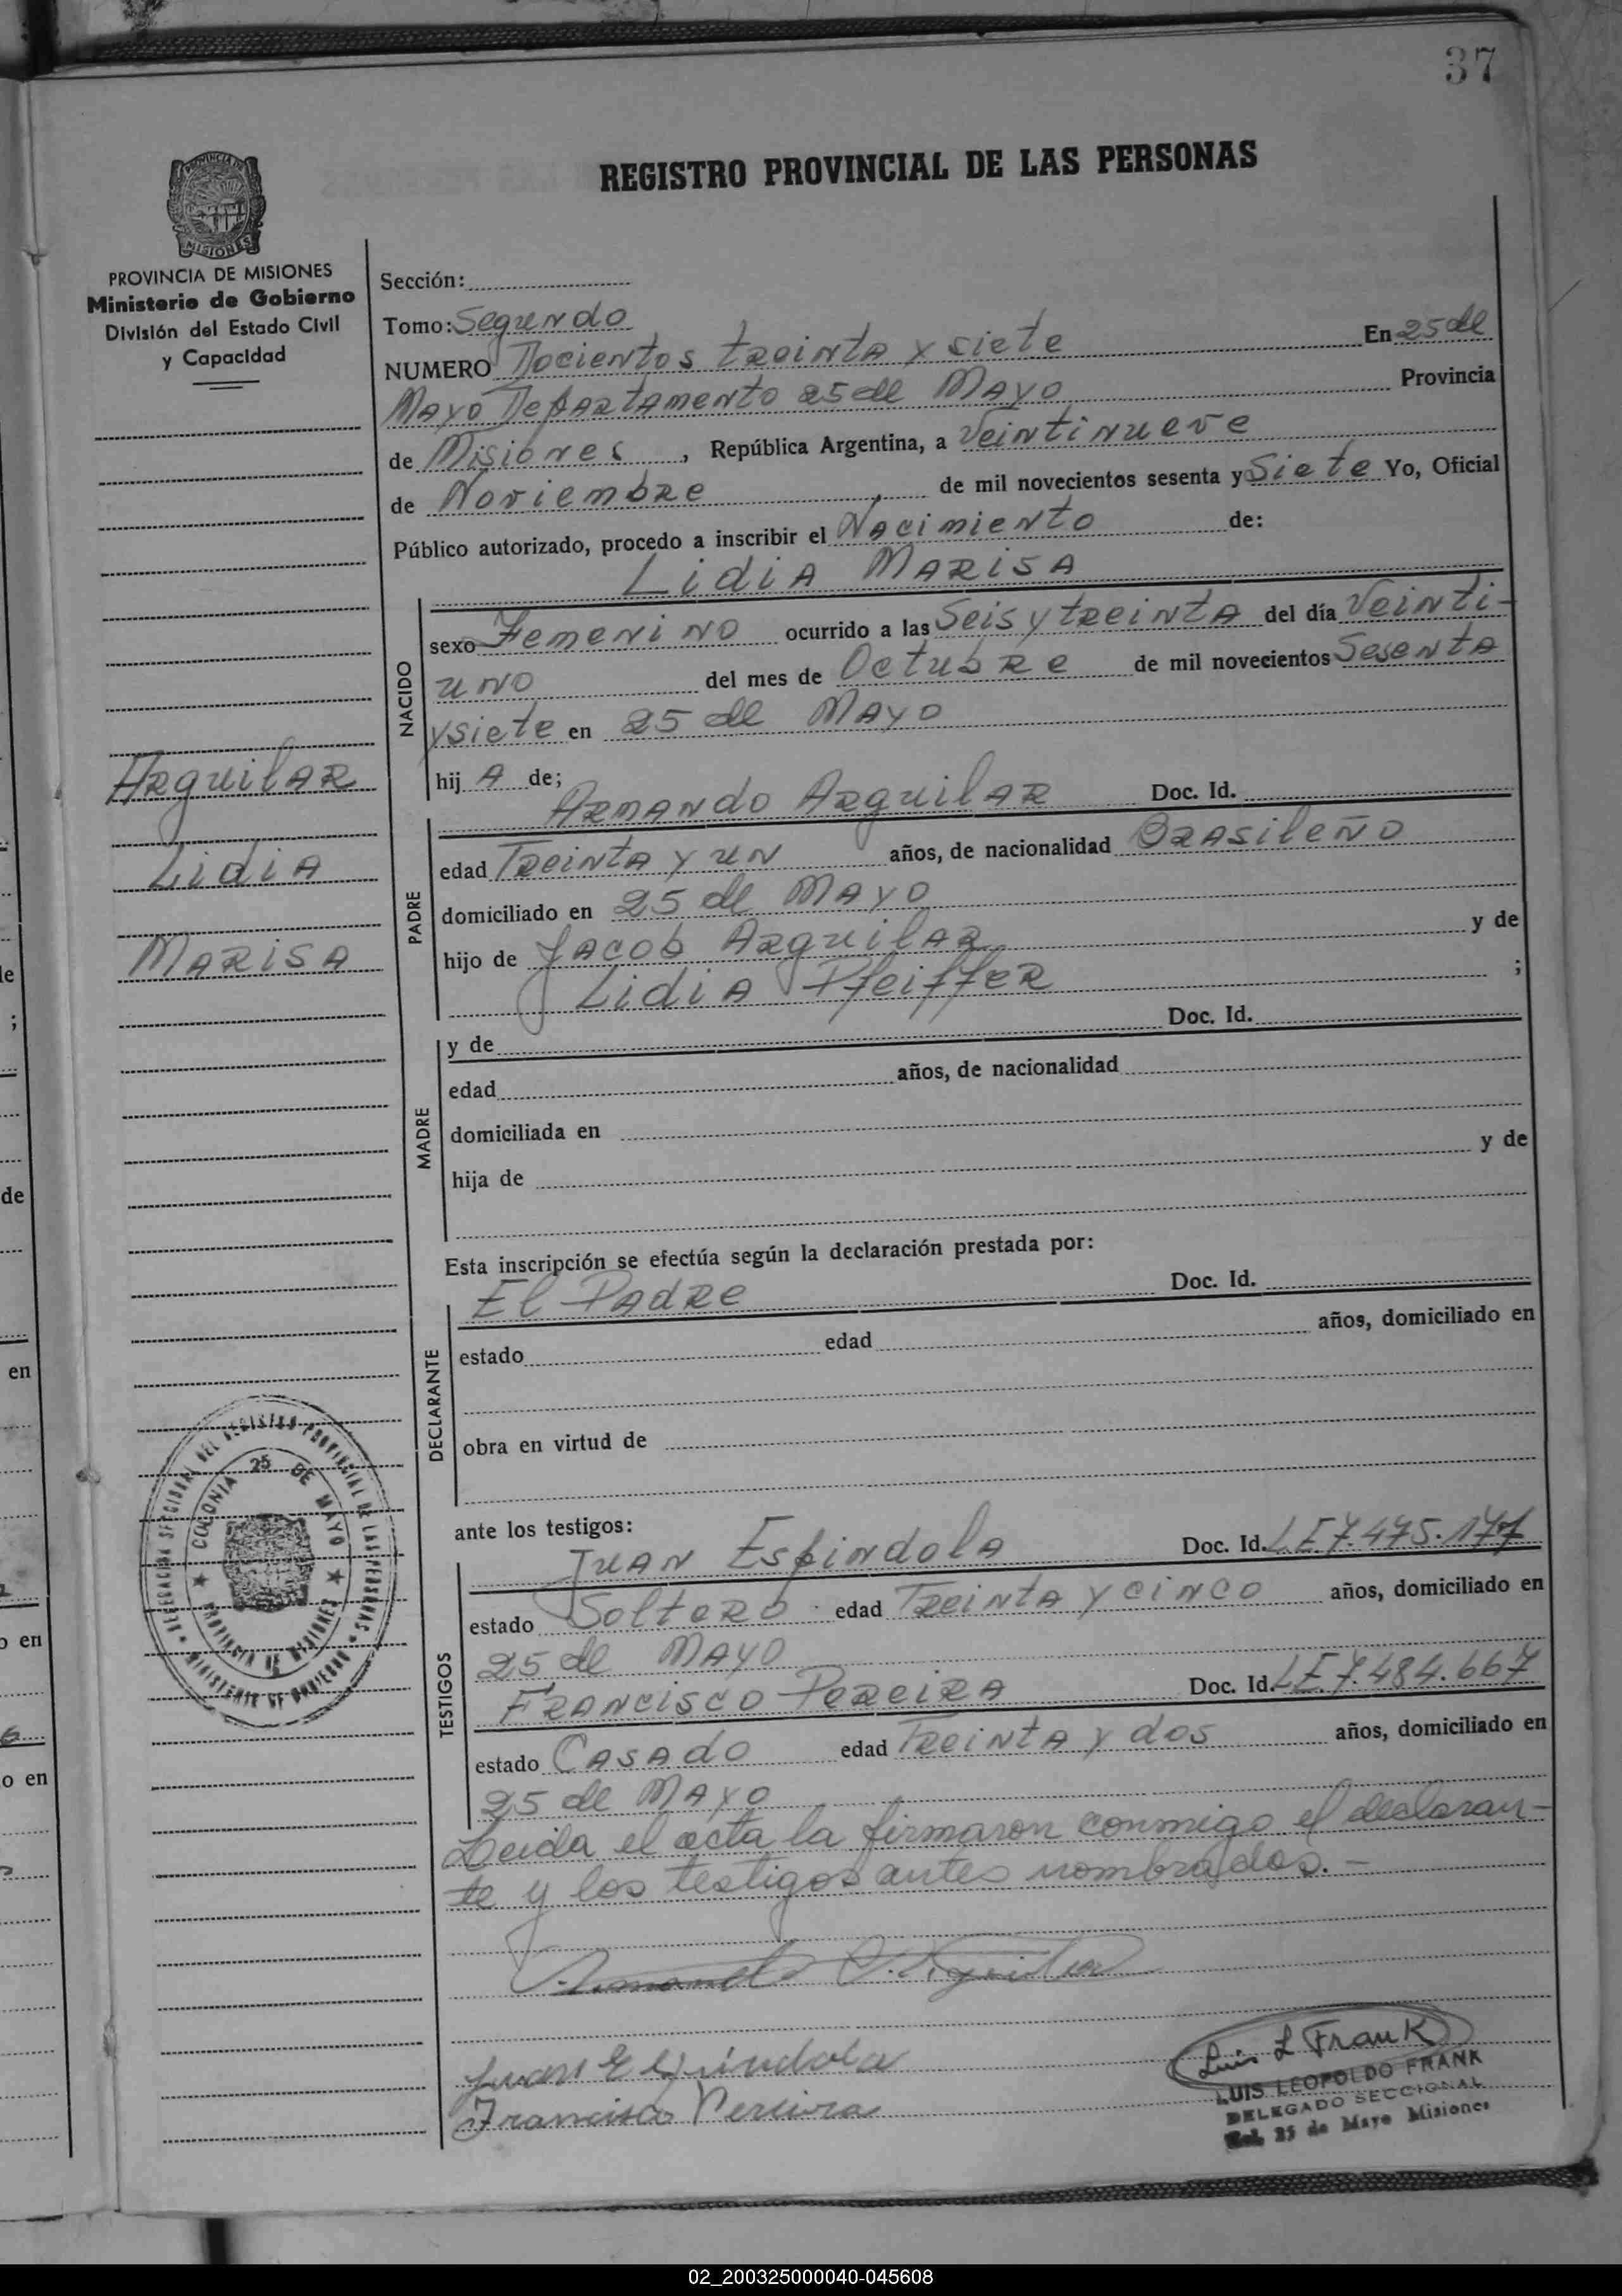 37
REGISTRO PROVINCIAL DE LAS PERSONAS
PROVINCIA DE MISIONES
Ministerio de Gobierno
División del Estado Civil
y Capacidad
Arguilar
Lidia
Marisa
Sección:
Tomo: Segundo
NUMERO Docientos treinta y siete En 25 de
Mayo Departamento 25 de Mayo Provincia
de Misiones, República Argentina, a Veintinueve
de Noviembre de mil novecientos sesenta y Siete Yo, Oficial
Público autorizado, procedo a inscribir el Nacimiento de:
Lidia Marisa
NACIDO
sexo Femenino ocurrido a las Seis y treinta del día Veinti-
uno del mes de Octubre de mil novecientos Sesenta
y siete en 25 de Mayo
hij A de;
Armando Arguilar Doc. Id.
PADRE
edad Treinta y un años, de nacionalidad Brasileño
domiciliado en 25 de Mayo
hijo de Jacob Arguilar y de
Lidia Pfeiffer ;
MADRE
y de Doc. Id.
edad años, de nacionalidad
domiciliada en
hija de y de
Esta inscripción se efectúa según la declaración prestada por:
El Padre Doc. Id.
DECLARANTE
estado edad años, domiciliado en
obra en virtud de
ante los testigos:
Juan Espindola Doc. Id. LE 7.475.177
TESTIGOS
estado Soltero edad Treinta y cinco años, domiciliado en
25 de Mayo
Francisco Pereira Doc. Id. LE 7.484.667
estado Casado edad Treinta y dos años, domiciliado en
25 de Mayo
Leida el acta la firmaron conmigo el declaran-
te y los testigos antes nombrados.-
Juan Espindola
Francisco Pereira
Luis L Frank
LUIS LEOPOLDO FRANK
DELEGADO SECCIONAL
Col. 25 de Mayo Misiones
DELEGACION SECCIONAL DEL REGISTRO PROVINCIAL DE LAS PERSONAS
COLONIA 25 DE MAYO
PROVINCIA DE MISIONES
02_200325000040-045608